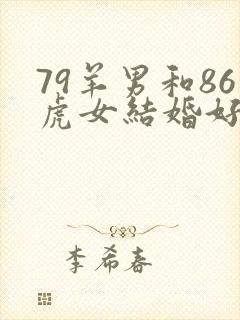 79羊男和86
虎女結婚好
李希春